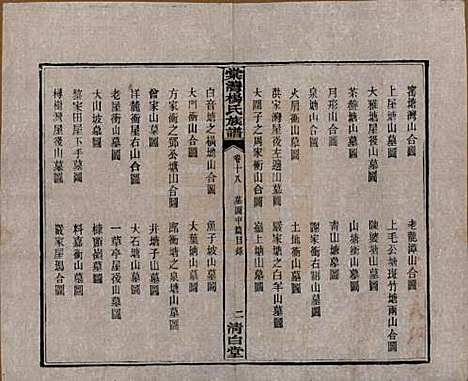 窑塘灣山合圖
老龍潭山合圖
上屋塘山合圖
上毛公塘斑竹塘兩山合圖
大雅塘屋後山墓圖
陳婆塘山墓圖
月形山合圖
山塘衝山墓圖
泉塘山合圖
青山塘墓圖
火眉衝山合圖
謝家衝右側山墓圖
洪家灣屋後左邊山墓圖
土地衝山合圖
大園子之周家衝山合圖
嚴家塘之白羊山墓圖
嶺上塘山墓圖
棠灣楊氏族譜
卷十八
墓圖中篇目錄
二
清白堂
白音塘之橫塘山合圖
魚子坡山墓圖
大門衝山合圖
大葉塘山墓圖
方家衝之鄧公塘山合圖
郎衝塘之泉塘山墓圖
曾家山墓圖
井塘子山墓圖
祥龍衝屋右山合圖
大石塘山墓圖
老屋衝山墓圖
一草亭屋後山墓圖
大山坡墓圖
樟樹嶺墓圖
黎家田屋下手墓圖
料嘉衝山墓圖
樟樹灣屋後山墓圖
嚴家屋場合圖